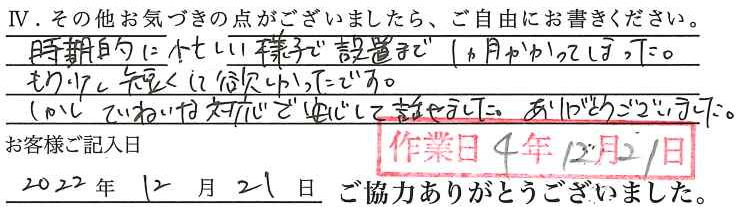 Ⅳ．その他お気づきの点がございましたら、ご自由にお書きください。
時期的に忙しい様子で設置まで1ヵ月かかってしまった。
もう少し短くして欲しかったです。
しかしていねいな対応で安心して話せました。ありがとうございました。
お客様ご記入日
作業日4年12月21日
2022年12月21日 ご協力ありがとうございました。